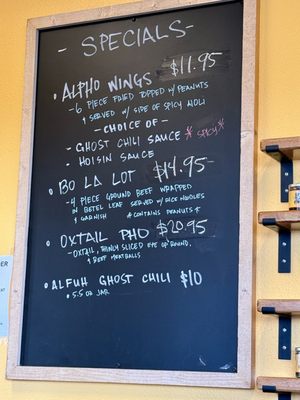 - SPECIALS -
• ALPHO WINGS $11.95
- 6 PIECE FRIED TOPPED W/ PEANUTS
& SERVED W/ SIDE OF SPICY MOLI
- CHOICE OF -
- GHOST CHILI SAUCE * SPICY *
- HOISIN SAUCE
• BO LA LOT $14.95-
- 4 PIECE GROUND BEEF WRAPPED
IN BETEL LEAF SERVED W/ RICE NOODLES
& GARNISH * CONTAINS PEANUTS *
• OXTAIL PHO $20.95
- OXTAIL, THINLY SLICED EYE OF ROUND,
& BEEF MEATBALLS
• ALFUH GHOST CHILI $10
- 5.5 OZ JAR